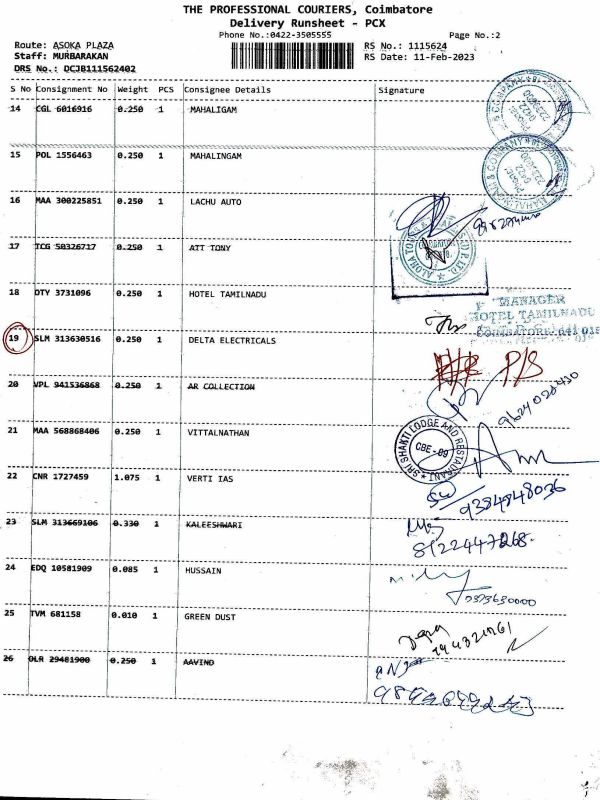 THE PROFESSIONAL COURIERS, Coimbatore
Delivery Runsheet - PCX
Phone No.:0422-3505555 Page No.:2
Route: ASOKA PLAZA RS No.: 1115624
Staff: MURBARAKAN RS Date: 11-Feb-2023
DRS No.: DCJB111562402
S No Consignment No Weight PCS Consignee Details Signature
14 CGL 6016916 0.250 1 MAHALIGAM
15 POL 1556463 0.250 1 MAHALINGAM
16 MAA 300225851 0.250 1 LACHU AUTO
17 TCG 50326717 0.250 1 ATT TONY
18 DTY 3731096 0.250 1 HOTEL TAMILNADU
MANAGER
HOTEL TAMILNADU
19 SLM 313630516 0.250 1 DELTA ELECTRICALS
P/S
20 VPL 941536868 0.250 1 AR COLLECTION
21 MAA 568868406 0.250 1 VITTALNATHAN
SRI SHANTI LODGE AND RESTAURANT
CBE-09
22 CNR 1727459 1.075 1 VERTI IAS
9384948036
23 SLM 313669106 0.330 1 KALEESHWARI
8122447268
24 EDQ 10581909 0.085 1 HUSSAIN
25 TVM 681158 0.010 1 GREEN DUST
26 OLR 29481900 0.250 1 AAVIND